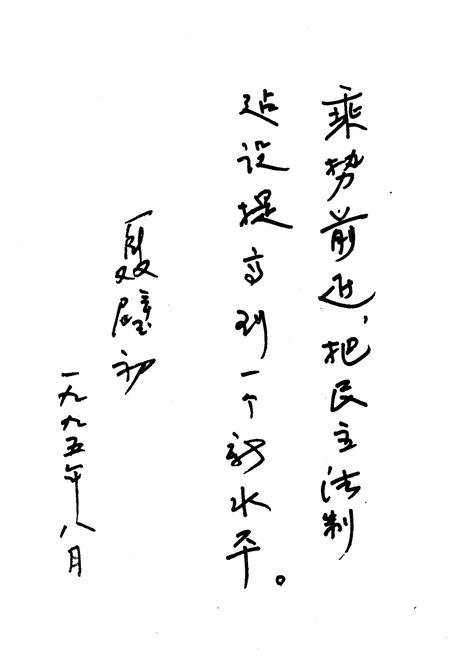 乘势前进，把民主法制
建设提高到一个新水平。
聂璧初
一九九五年八月